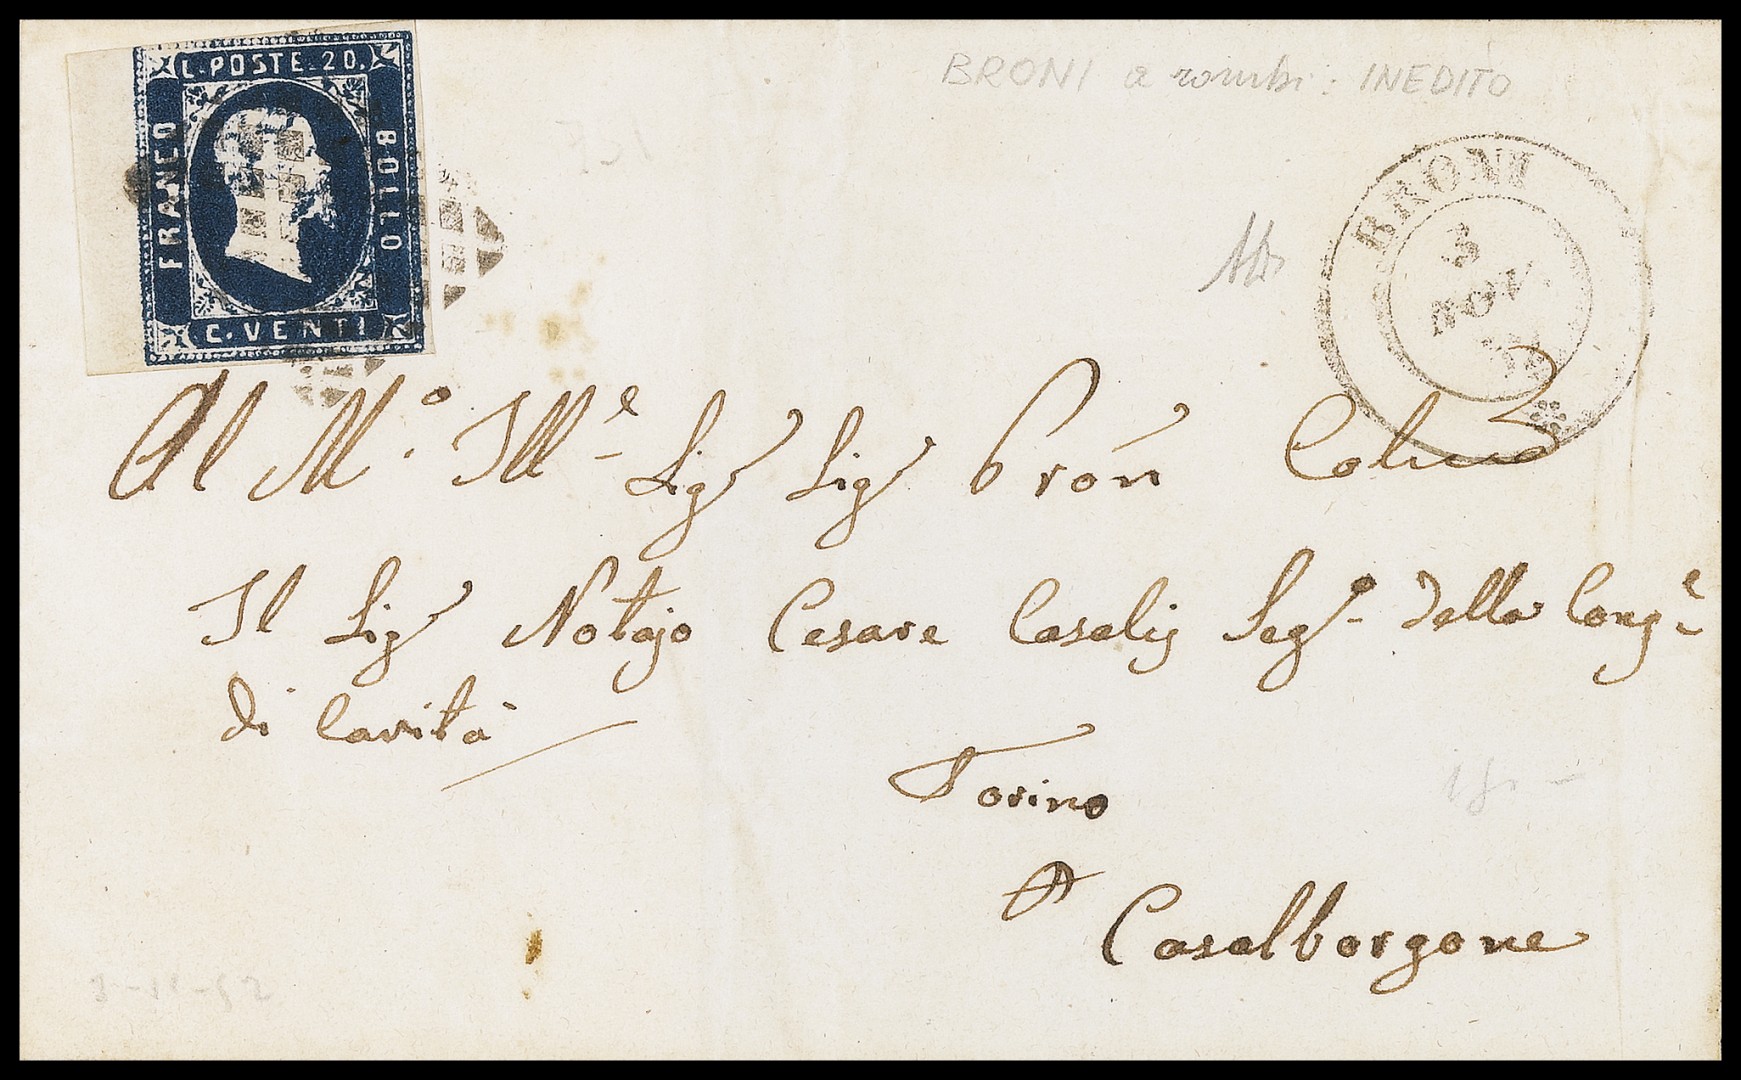 C. POSTE. 20.
FRANCO
BOLLO
C. VENTI
BRONI a rombi: INEDITO
BRONI
3
NOV.
52
Al M.º Ill.e Sig Sig Pron Colmo
Il Sig Notajo Cesare Casalis Seg.o della Cong.e
di Carità
Torino
A
Casalborgone
3-11-52